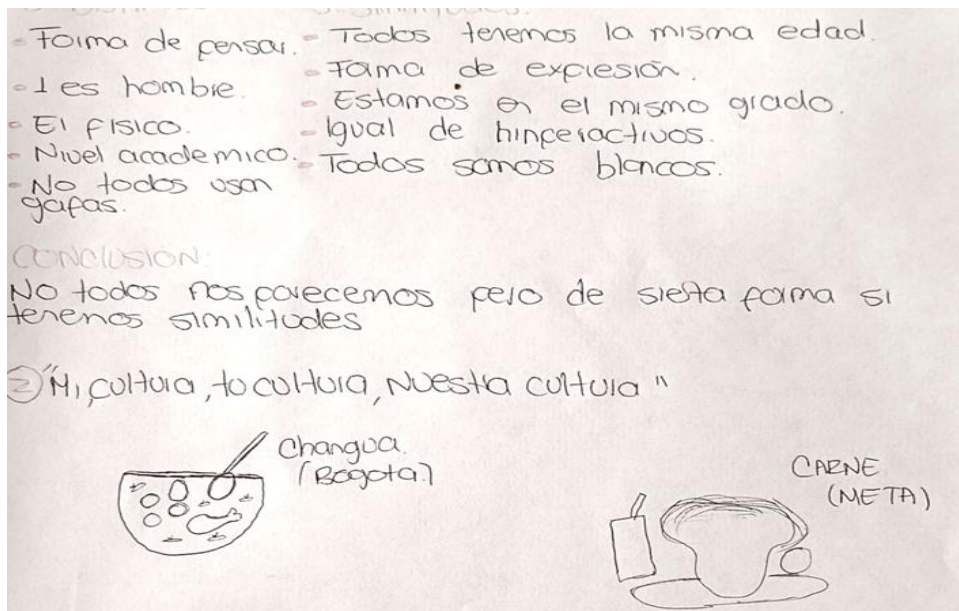 - Forma de pensar.
- 1 es hombre.
- El fisico.
- Nivel academico.
- No todos usan
gafas.
- Todos tenemos la misma edad.
- Foma de expresión.
- Estamos en el mismo grado.
- Igual de hinperactivos.
- Todos somos blancos.
CONCLUSION:
No todos nos parecemos pero de sierta forma si
tenemos similitudes
② "Mi cultura, tu cultura, Nuestra cultura"
Changua.
(Bogota)
CARNE
(META)